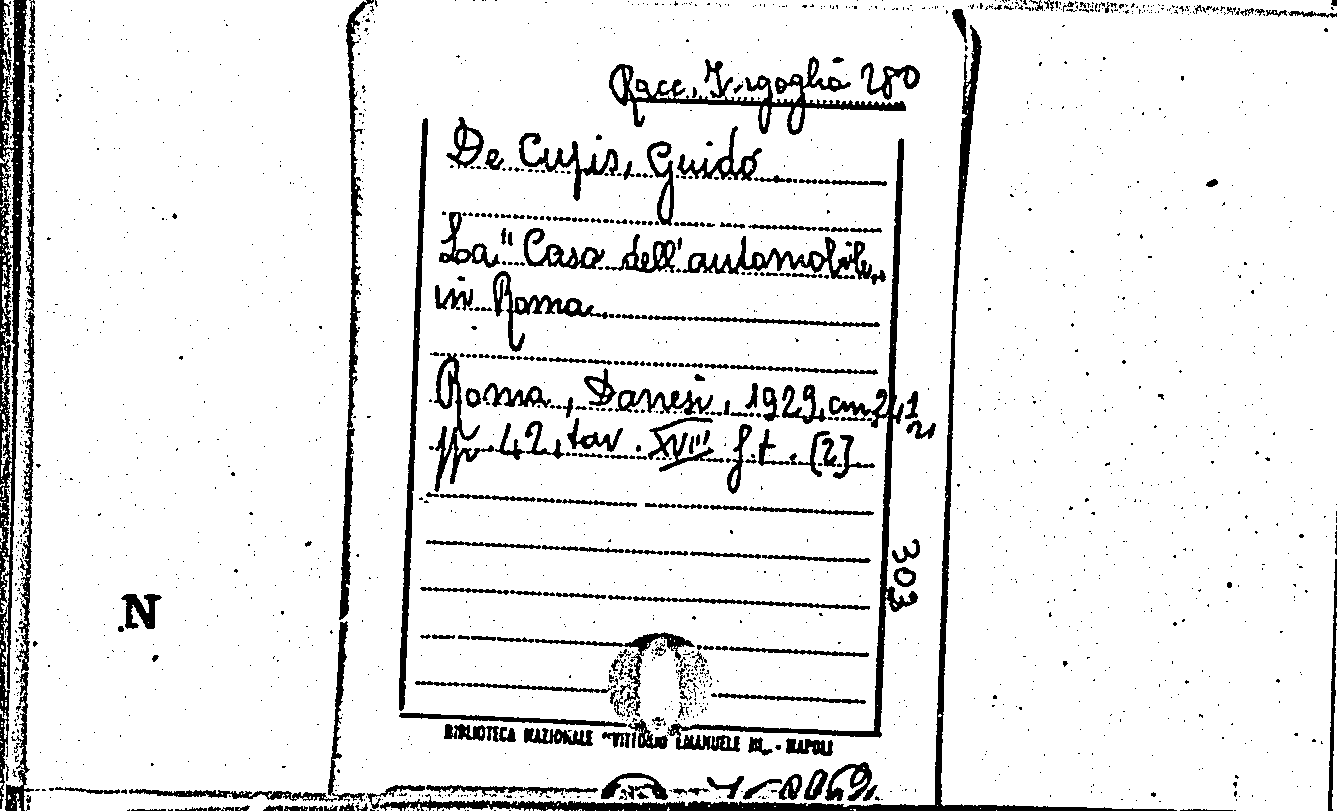 Racc. Vergoglia 280
De Cupis, Guido.
La "Casa dell'automobile„
in Roma.
Roma, Danesi, 1929, cm 24,1
21
pp. 42, tav. XVIII f.t. [2]
303
N
BIBLIOTECA NAZIONALE "VITTORIO EMANUELE III„ - NAPOLI